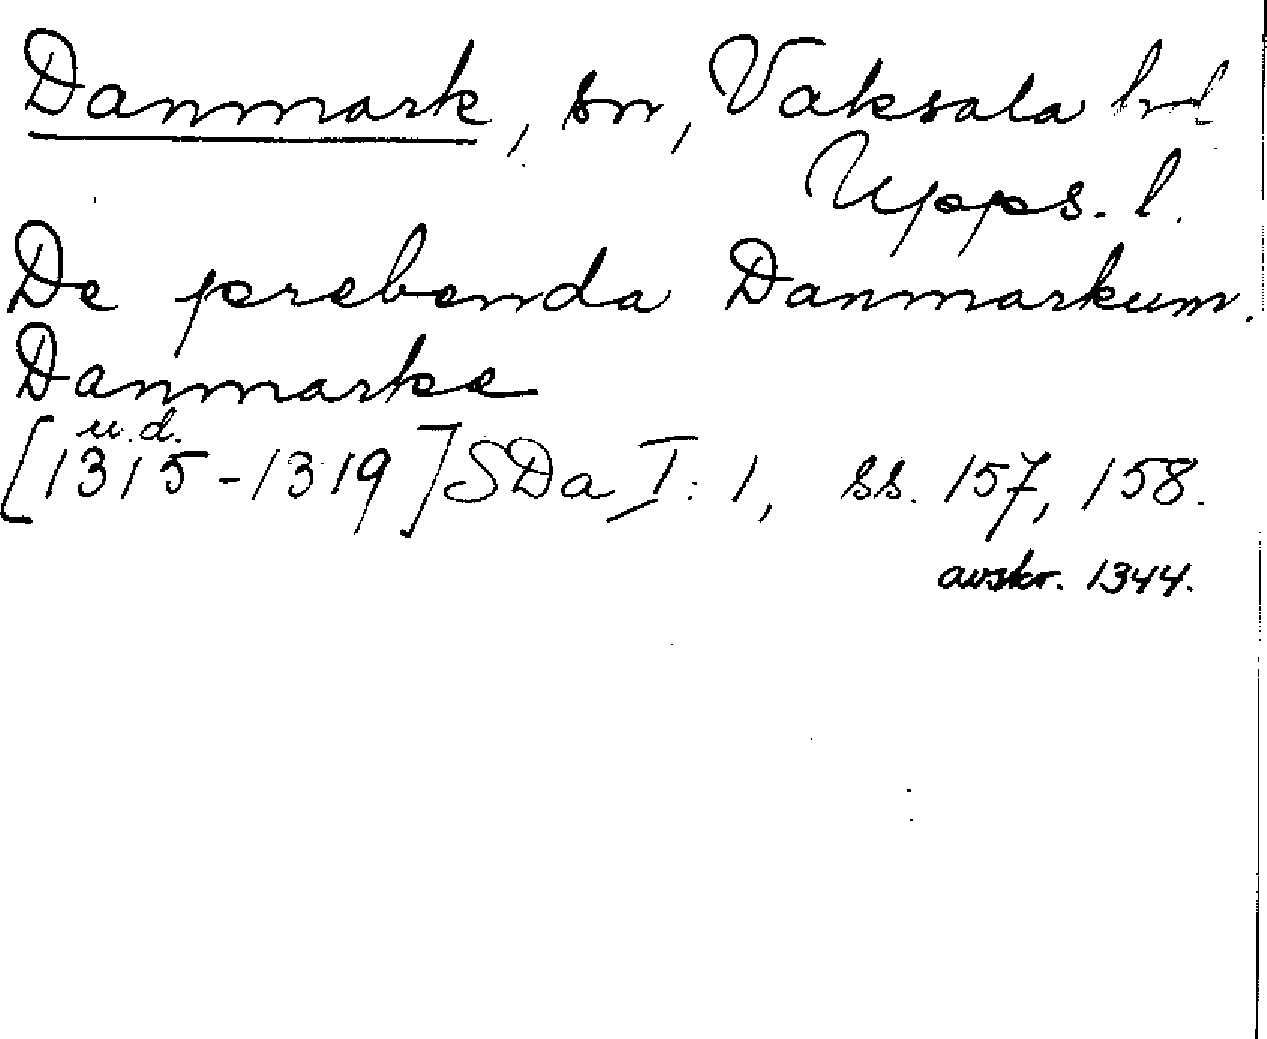 Danmark, sn, Vaksala hd
Upps. l.
De prebenda Danmarkum.
Danmarke
u.d.
[1315-1319] SDa I: 1, ss. 157, 158.
avskr. 1344.